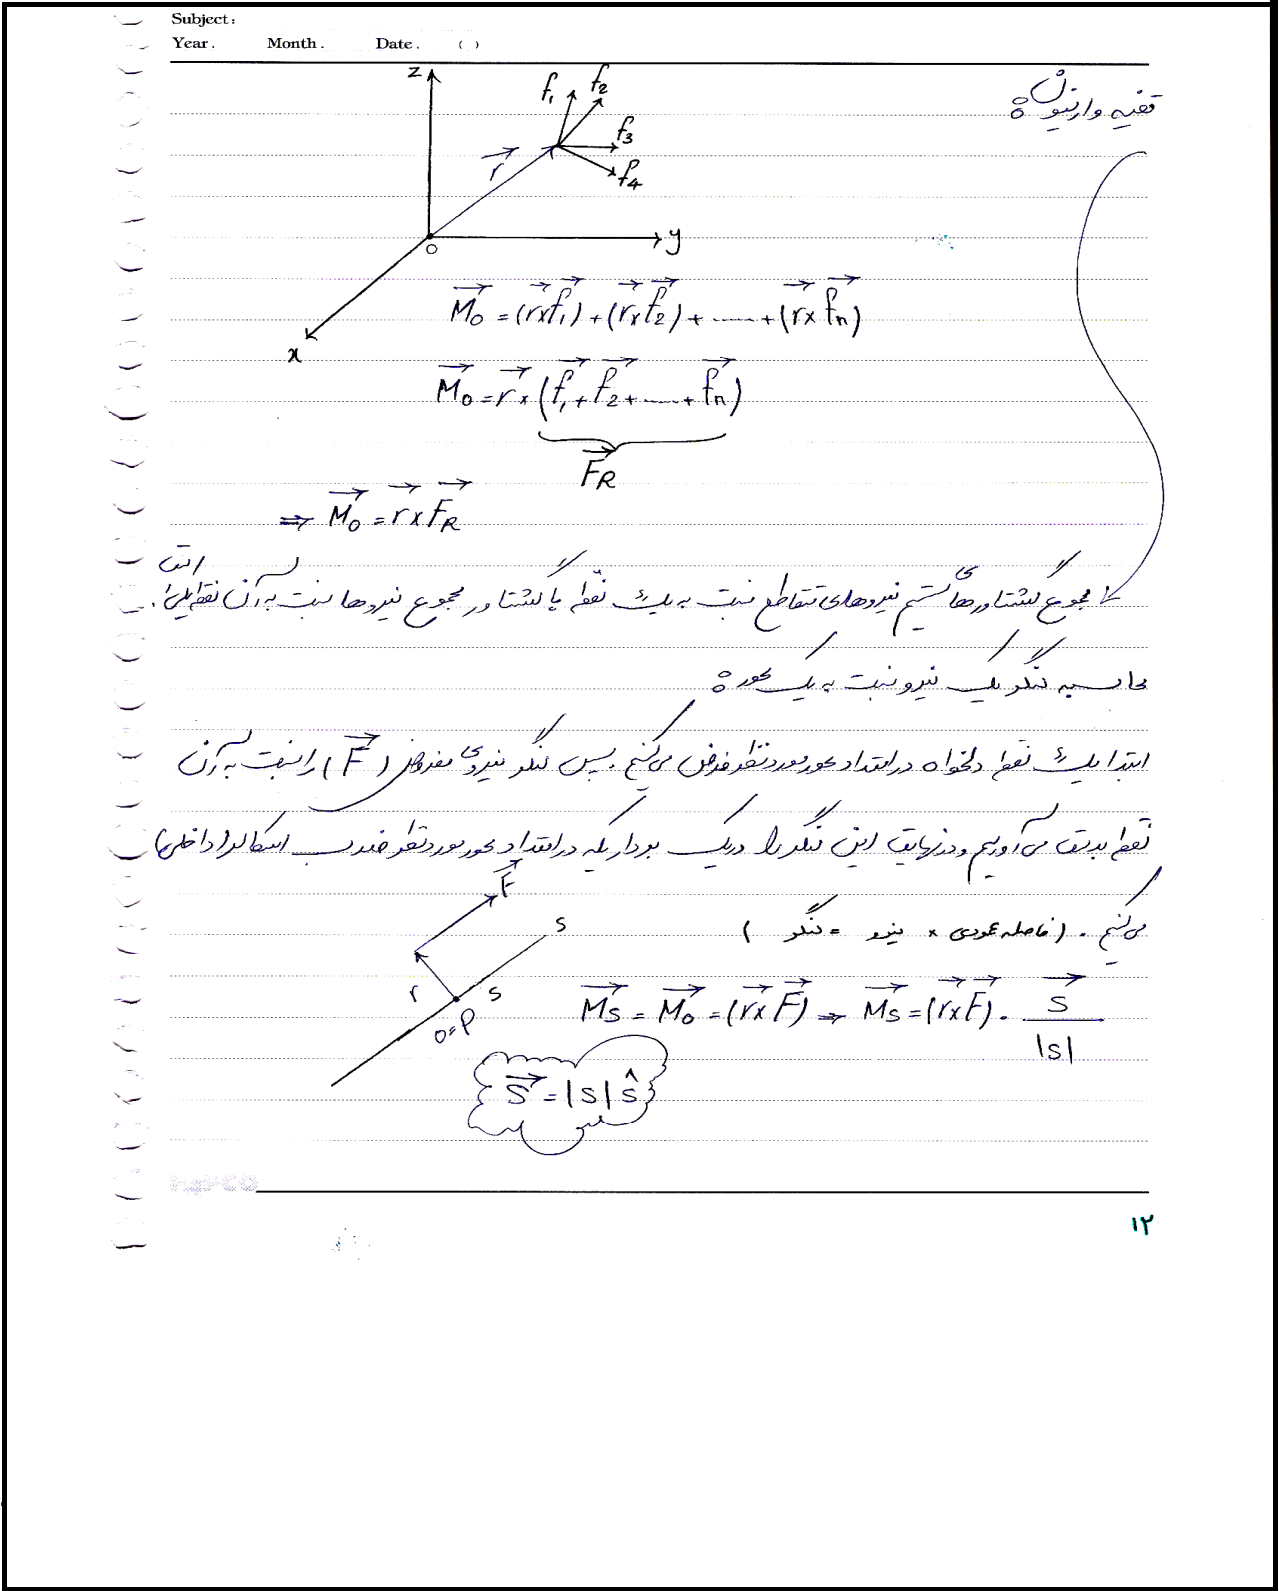 Subject:
Year. Month. Date. ( )
قضیه وارنیون:
z
f₁ f₂
f₃
f₄
r
o
y
x
M₀ = (r×f₁) + (r×f₂) + ...... + (r×fₙ)
M₀ = r × (f₁ + f₂ + ...... + fₙ)
F_R
⇒ M₀ = r×F_R
مجموع گشتاورهای سیستم نیروهای متقاطع نسبت به یک نقطه با گشتاور مجموع نیروها نسبت به آن نقطه یکی است.
محاسبه لنگر یک نیرو نسبت به یک محور:
ابتدا یک نقطه دلخواه در امتداد محور مورد نظر فرض می‌کنیم. سپس لنگر نیروی مفروض (F) را نسبت به آن
نقطه بدست می‌آوریم و در نهایت این لنگر را در یک بردار یکه در امتداد محور مورد نظر ضرب اسکالر (داخلی)
می‌کنیم. (فاصله عمودی × نیرو = لنگر)
F
s
r
s
o=P
M_S = M₀ = (r×F) ⇒ M_S = (r×F) . S/|S|
S = |S| ŝ
۱۲